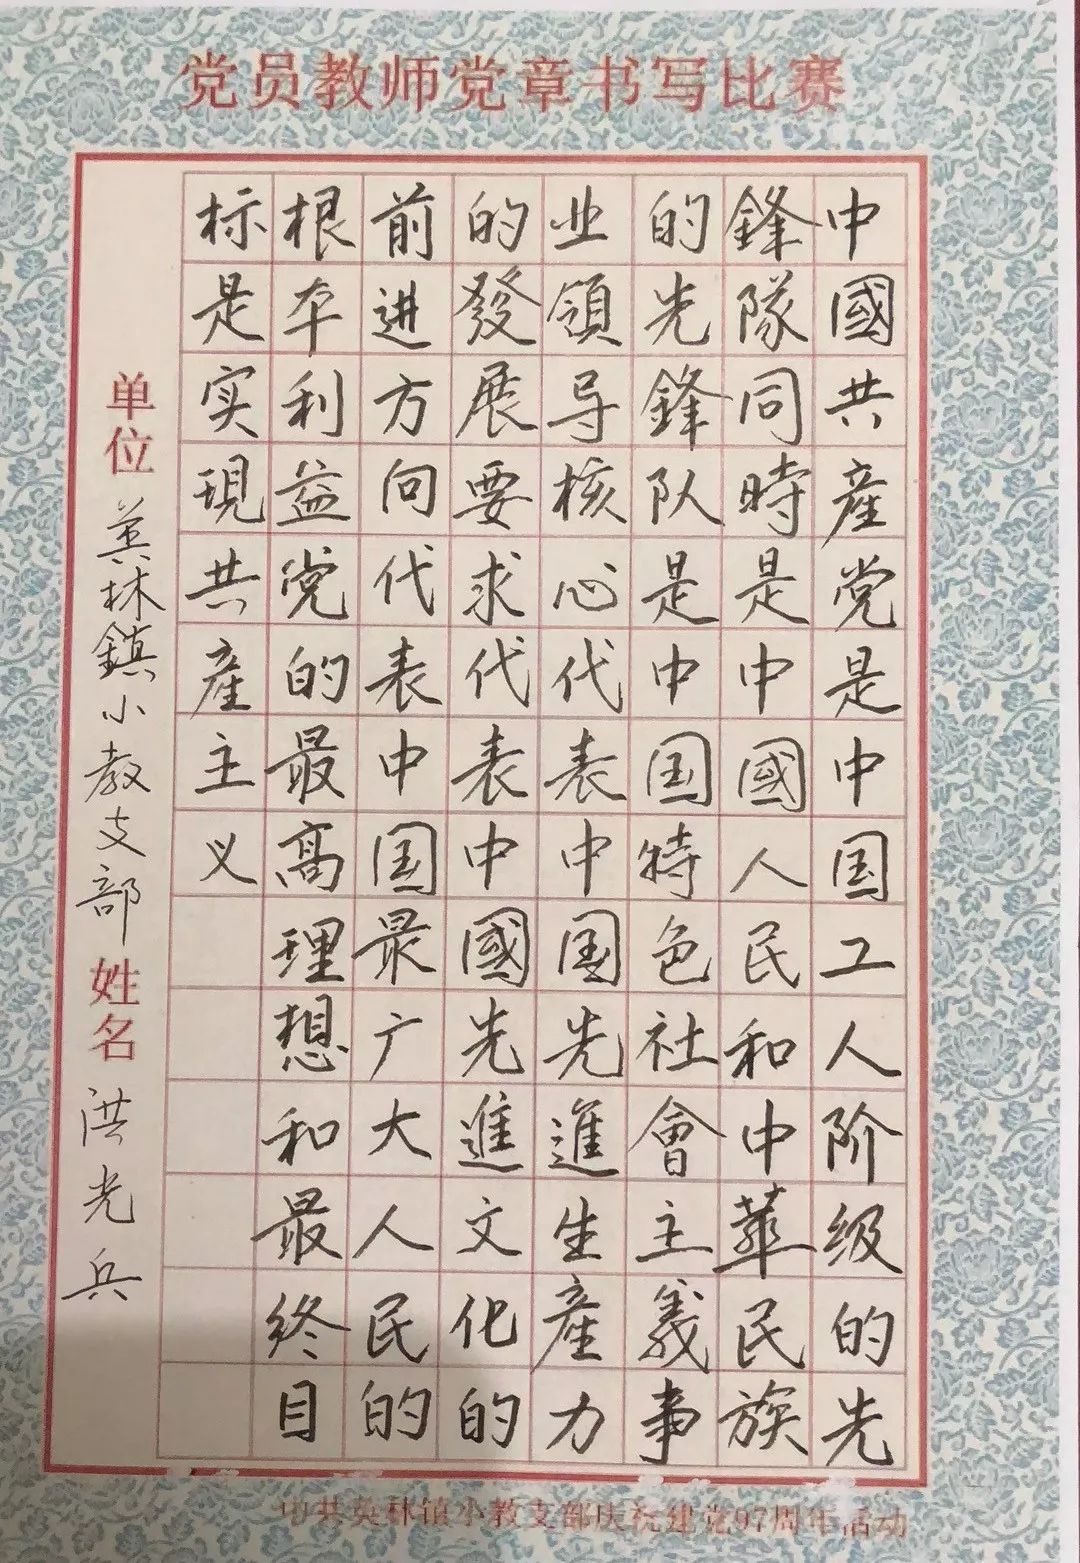 党员教师党章书写比赛
中國共產党是中国工人阶级的先
鋒隊同時是中國人民和中華民族
的光鋒队是中国特色社會主義事
业領导核心代表中国先進生產力
的發展要求代表中國先進文化的
前进方向代表中国最广大人民的
根本利益党的最高理想和最终目
标是实現共產主义
单位 英林鎮小教支部 姓名 洪光兵
中共英林镇小教支部庆祝建党97周年活动